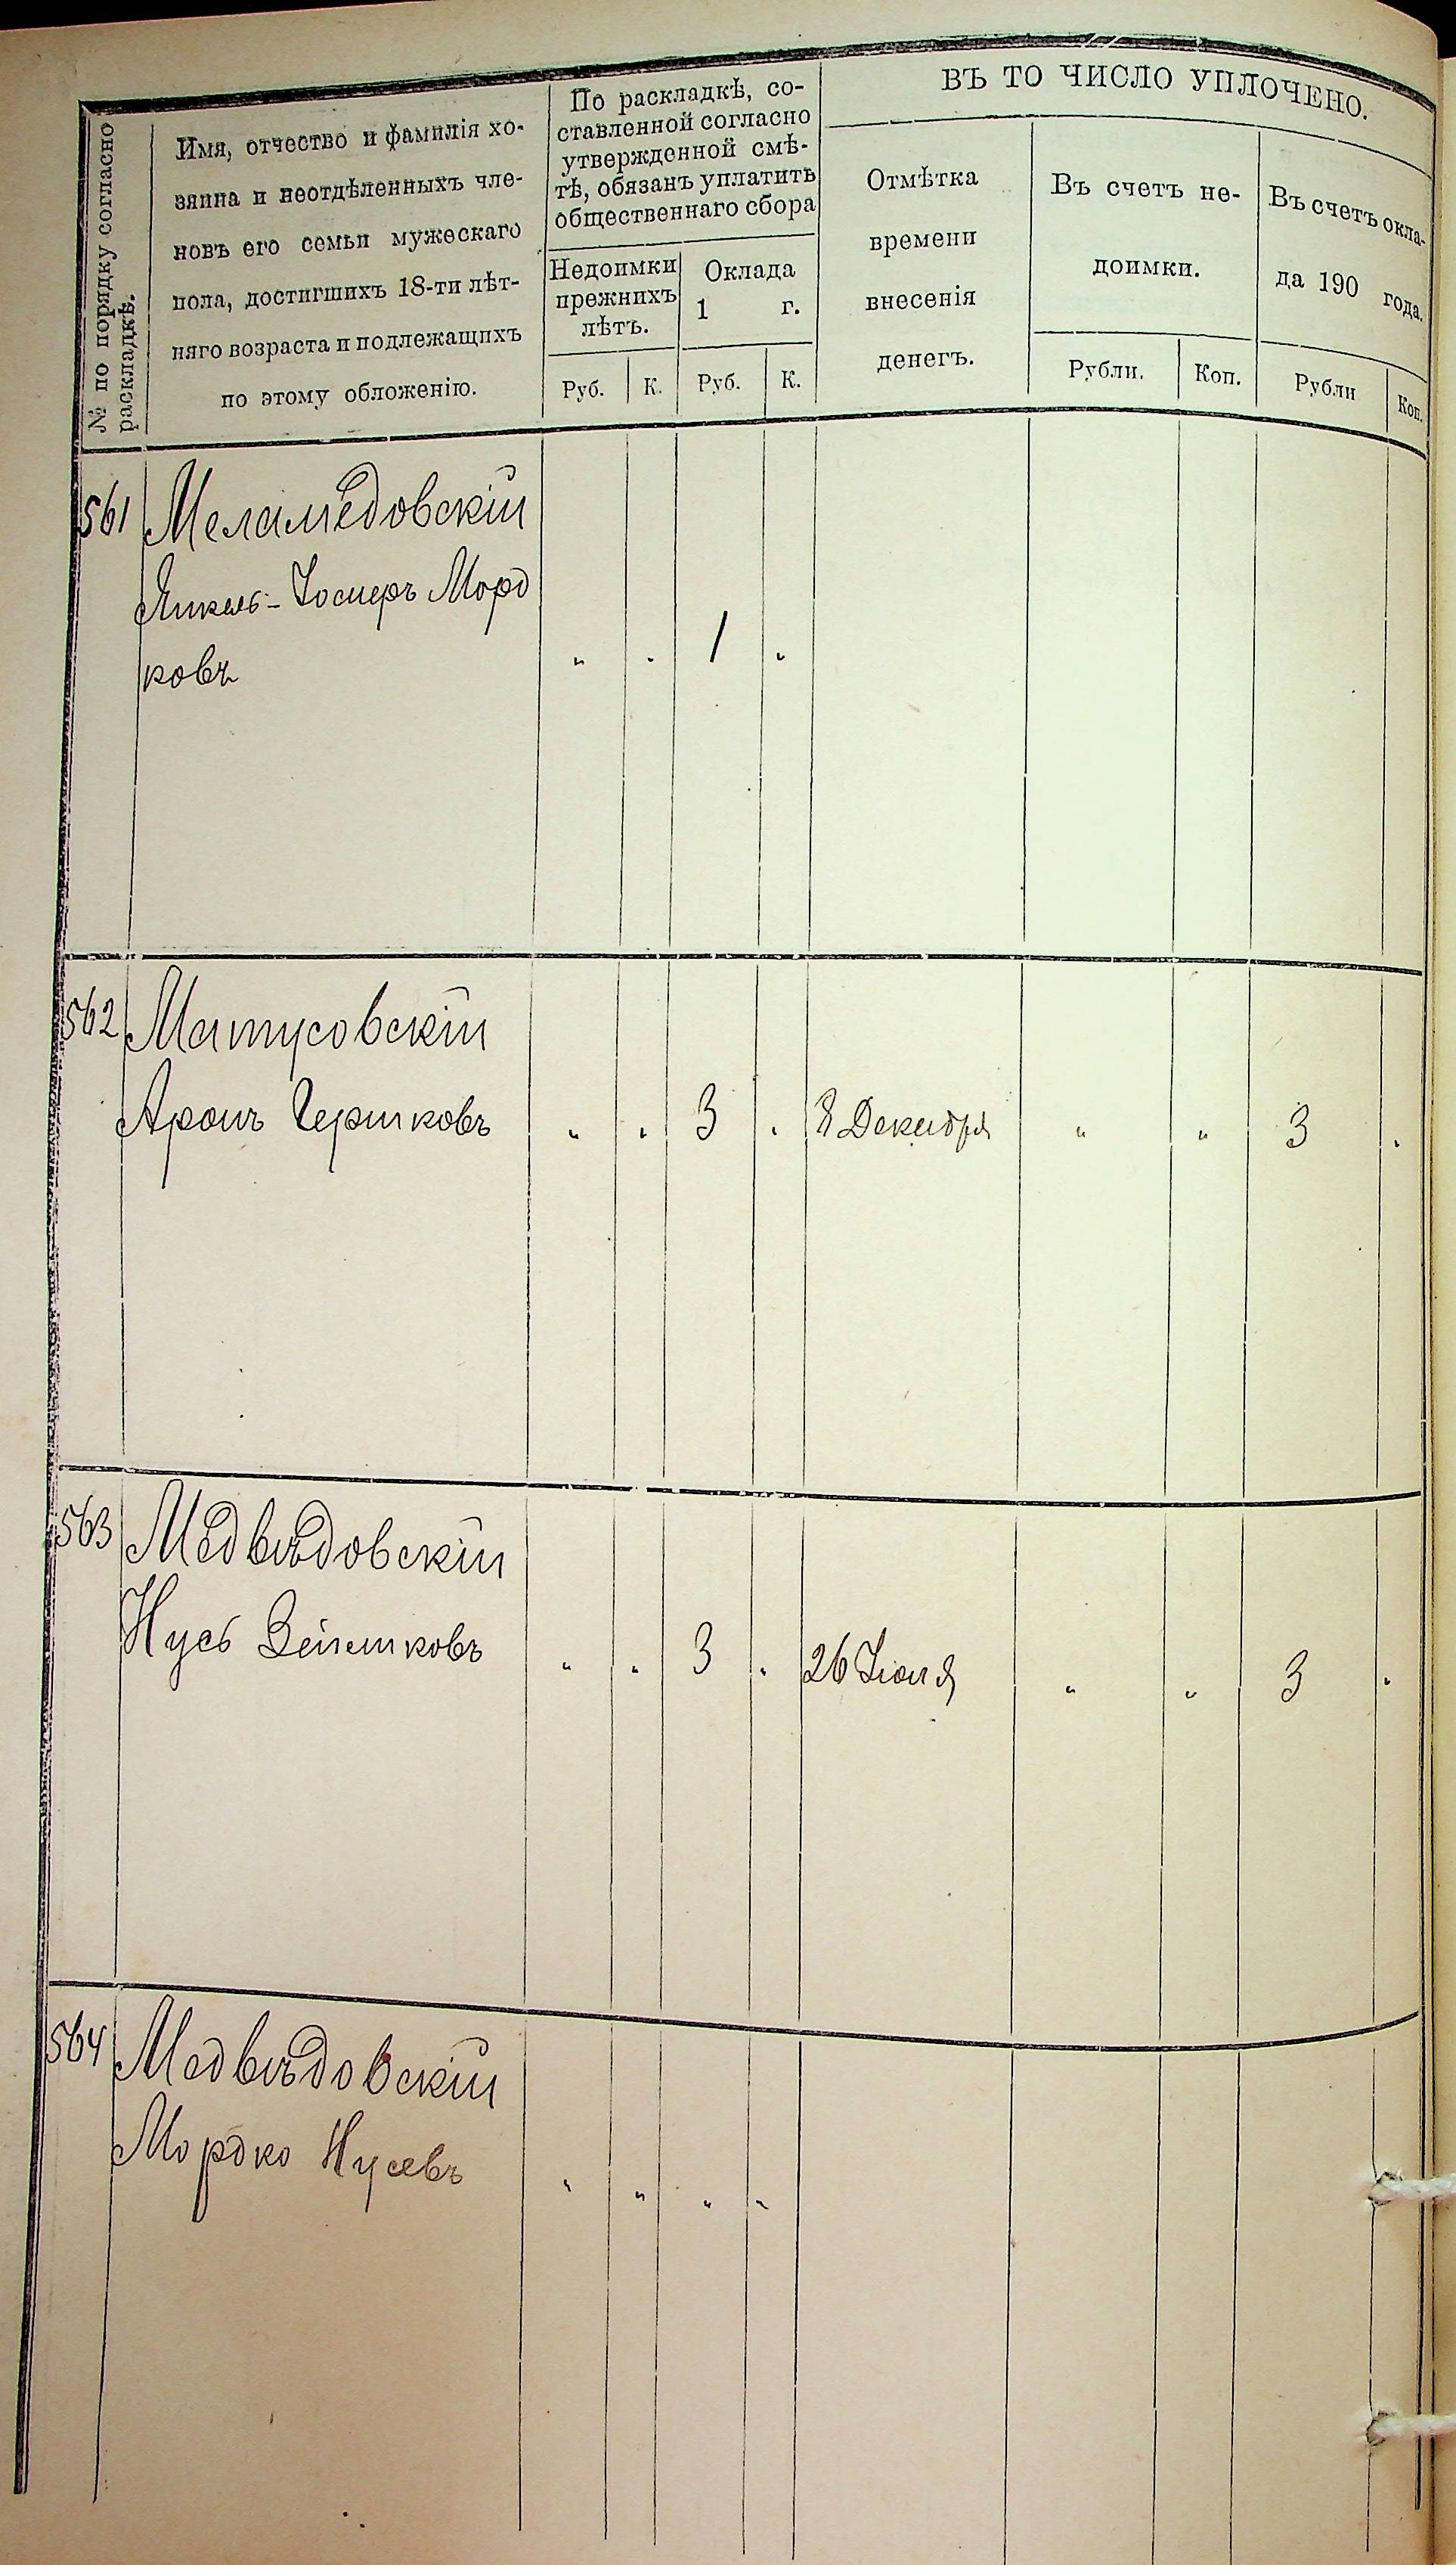 № по порядку согласно
раскладкѣ.
Имя, отчество и фамилія хо-
зяина и неотдѣленныхъ чле-
новъ его семьи мужескаго
пола, достигшихъ 18-ти лѣт-
няго возраста и подлежащихъ
по этому обложенію.
По раскладкѣ, со-
ставленной согласно
утвержденной смѣ-
тѣ, обязанъ уплатить
общественнаго сбора
Недоимки
прежнихъ
лѣтъ.
Оклада
1 г.
Руб. К. Руб. К.
ВЪ ТО ЧИСЛО УПЛОЧЕНО.
Отмѣтка
времени
внесенія
денегъ.
Въ счетъ не-
доимки.
Рубли. Коп.
Въ счетъ окла-
да 190 года.
Рубли Коп.
561 Меламедовскій
Янкель- Мord
ковъ „ „ 1 „
562 Матусовскій
Аронъ Гершковъ „ „ 3 „ 8 Декабря „ „ 3 „
563 Медвѣдовскій
Нусь Зейликовъ „ „ 3 „ 26 Іюля „ „ 3 „
564 Медвѣдовскій
Мордко Нусевъ „ „ „ „